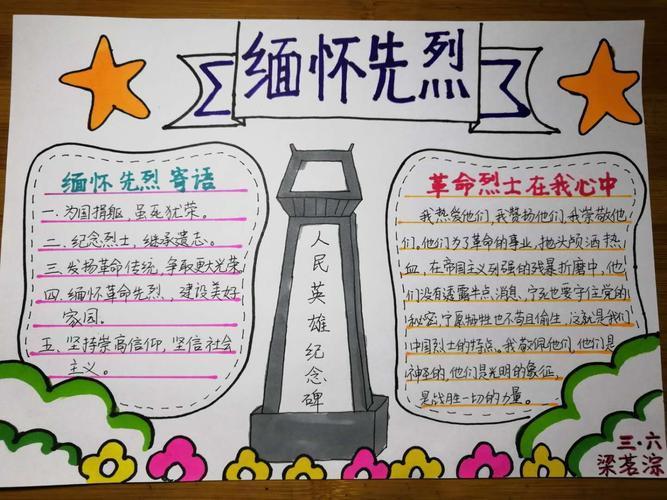 缅怀先烈
缅怀先烈寄语
一.为国捐躯,虽死犹荣。
二.纪念烈士,继承遗志。
三.发扬革命传统,争取更大光荣
四.缅怀革命先烈、建设美好
家园。
五.坚持崇高信仰,坚信社会
主义。
人民英雄纪念碑
革命烈士在我心中
我热爱他们,我赞扬他们,我崇敬他
们,他们为了革命的事业,抛头颅洒热
血,在帝国主义列强的残暴折磨中,他
们没有透露半点消息,宁死也要守住党的
秘密,宁愿牺牲也不苟且偷生,这就是我们
中国烈士的特点。我敬佩他们,他们是
神圣的,他们是光明的象征,
是战胜一切的力量。
三·六
梁茗淙